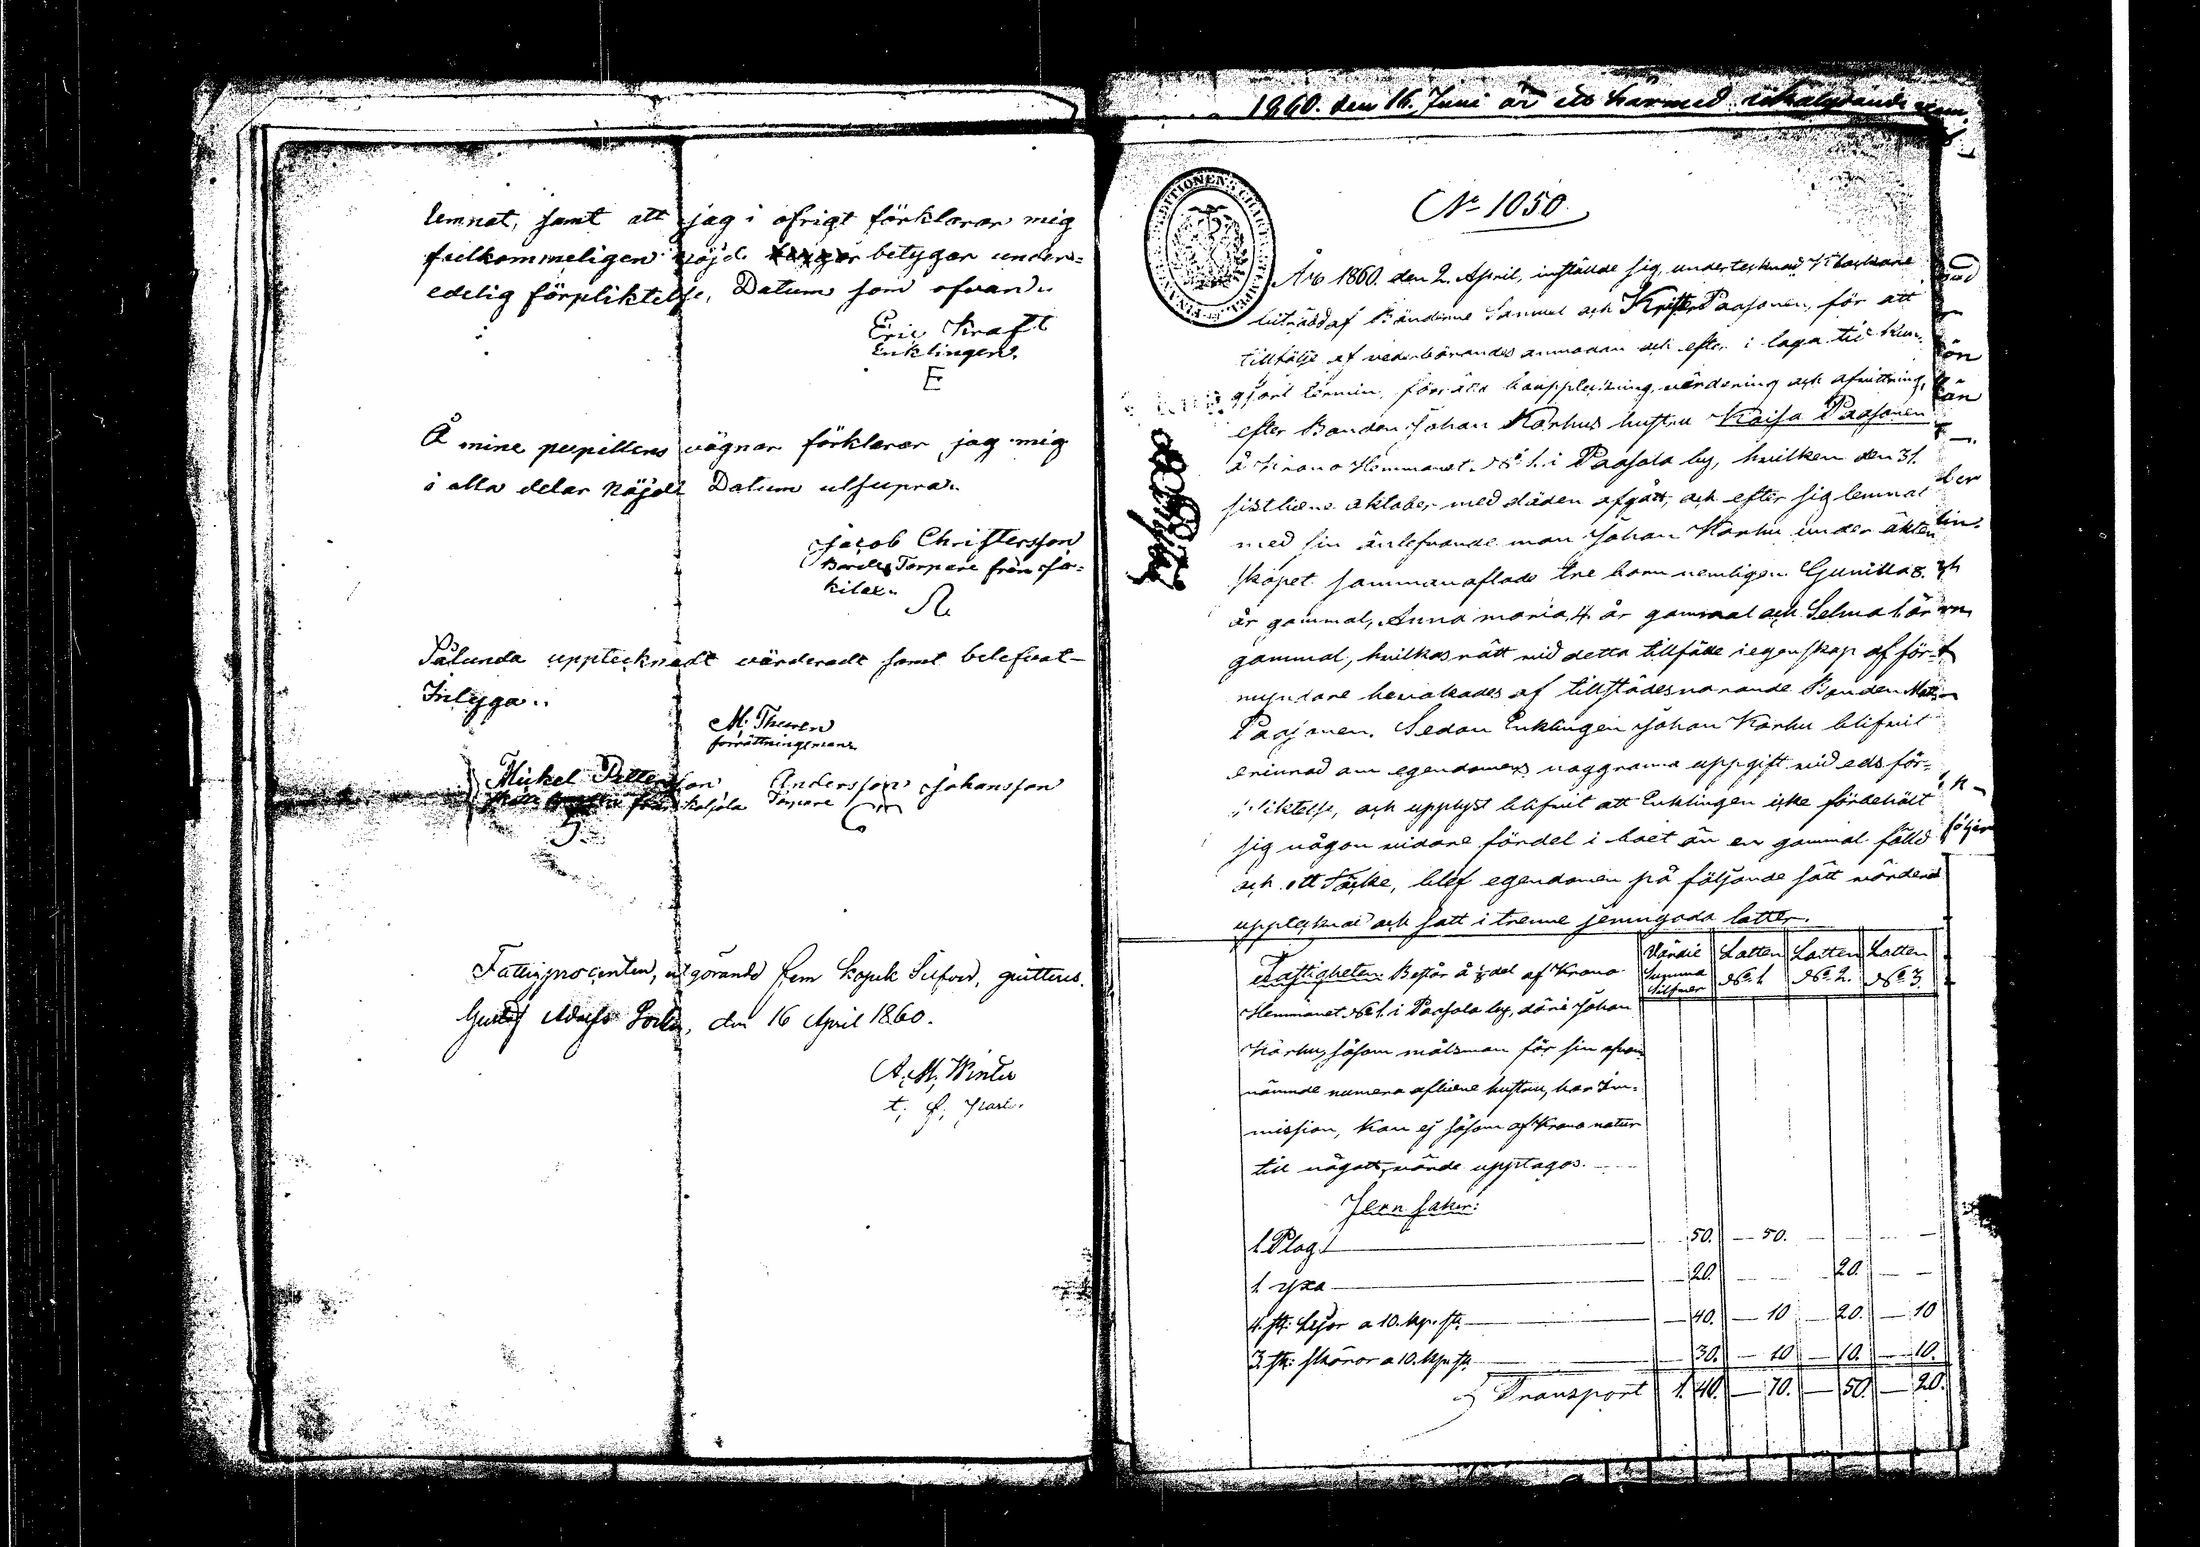 lemnat, samt att jag i öfrigt förklarar mig
fullkommeligen nöjd betygar under
edelig förpliktelse, Datum som ofvan
Eric Kraft
Enklingen.
E
Å mine pupillens vägnar förklarar jag mig
i alla delar nöjdt Datum utsupra
Jacob Christersson
Torpare från
kilax
Sålunda upptecknadt värderadt samt befefvat
Intyga
M. Thuren
förrättningsman
Mickel Petterson Andersson Johansson
från Koljola Torpare
Fattigprocenten, utgörande fem kopek Silfver, qvitteras.
Gustaf Adolfs den 16 April 1860.
A. M. Winter
t. f.
1860. den 16. Juni är ett härmed
No 1050
År 1860. den 2. April, inställde sig undertecknad Klockare
biträdd af Bönderne Samuel och Krister Paasonen, för att
tillfölje af vederbörandes anmodan och efter i laga tid kun
gjord termin, förrätta bouppteckning, värdering och afvittring,
efter Bonden Johan Karhus hustru Kaisa Paasonen
å Krono Hemmanet No 1. i Paasola by, hvilken den 31.
sistledne oktober med döden afgått, och efter sig lemnat
med sin änlefvande man Johan Karhu under äkten
skapet sammanaflade tre barn nemligen Gunilla 8.
år gammal, Anna Maria, 4 år gammal och Selma 1 år
gammal, hvilkas rätt vid detta tillfälle i egenskap af för
myndare bevakades af tillstädesvarande Bonden Mats
Paasonen. Sedan Enklingen Johan Karhu blifvit
erinrad om egendomens noggranna uppgift vid eds för=
pliktelse, och upplyst blifvit att Enklingen icke förbehållt
sig någon vidare fördel i boet än en gammal fälld
och ett Täcke, blef egendomen på följande sätt värderad
upptecknad och satt i trenne jemngoda lotter.
Fastigheten: Består å ½ del af Krono
Värdie Summa Silfver Lotten No 1. Lotten No 2. Lotten No 3.
Hemmanet No 1. i Paasola by, därå Johan
Karhu, såsom målsman för sin ofvan
nämnde numera aflidne hustru, har Im=
mission, kan ej såsom af Krono natur
till något värde upptagas.
Jern saker:
1. Plog 50. — 50. — —
1. yxa — 20. — 20. — —
4. st: Lijor a 10. kp. st. — 40. — 10 — 20. — 10
3. st: skäror a 10. kp. st. — 30. — 10 — 10. — 10.
Transport 1. 40. — 70. — 50. — 20.